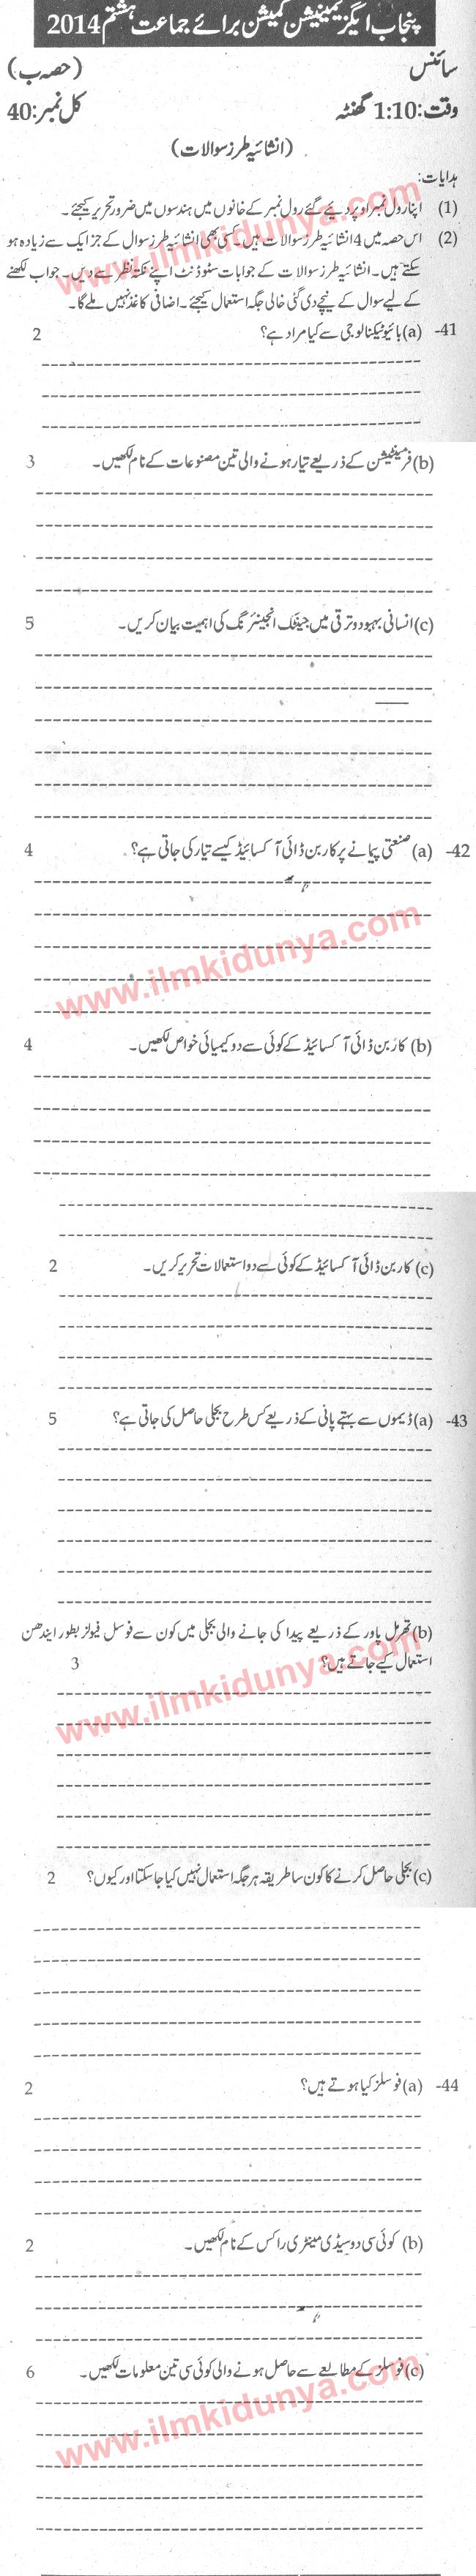 پنجاب ایگزیمینیشن کمیشن برائے جماعت ہشتم 2014
سائنس (حصہ ب)
وقت: 1:10 گھنٹہ کل نمبر: 40
(انشائیہ طرز سوالات)
ہدایات:
(1) اپنا رول نمبر اوپر دیئے گئے رول نمبر کے خانوں میں ہندسوں میں ضرور تحریر کیجئے۔
(2) اس حصہ میں 4 انشائیہ طرز سوالات ہیں۔ کسی بھی انشائیہ طرز سوال کے جز ایک سے زیادہ ہو
سکتے ہیں۔ انشائیہ طرز سوالات کے جوابات سٹوڈنٹ اپنے نکتہ نظر سے دیں۔ جواب لکھنے
کے لیے سوال کے نیچے دی گئی خالی جگہ استعمال کیجئے۔ اضافی کاغذ نہیں ملے گا۔
www.ilmkidunya.com
41- (a) بائیوٹیکنالوجی سے کیا مراد ہے؟ 2
(b) فرمینٹیشن کے ذریعے تیار ہونے والی تین مصنوعات کے نام لکھیں۔ 3
(c) انسانی بہبود و ترقی میں جینٹک انجینئرنگ کی اہمیت بیان کریں۔ 5
42- (a) صنعتی پیمانے پر کاربن ڈائی آکسائیڈ کیسے تیار کی جاتی ہے؟ 4
www.ilmkidunya.com
(b) کاربن ڈائی آکسائیڈ کے کوئی سے دو کیمیائی خواص لکھیں۔ 4
(c) کاربن ڈائی آکسائیڈ کے کوئی سے دو استعمالات تحریر کریں۔ 2
43- (a) ڈیموں سے بہتے پانی کے ذریعے کس طرح بجلی حاصل کی جاتی ہے؟ 5
(b) تھرمل پاور کے ذریعے پیدا کی جانے والی بجلی میں کون سے فوسل فیولز بطور ایندھن
استعمال کیے جاتے ہیں؟ 3
www.ilmkidunya.com
(c) بجلی حاصل کرنے کا کون سا طریقہ ہر جگہ استعمال نہیں کیا جا سکتا اور کیوں؟ 2
44- (a) فوسلز کیا ہوتے ہیں؟ 2
(b) کوئی سی دو سیڈی مینٹری راکس کے نام لکھیں۔ 2
(c) فوسلز کے مطالعے سے حاصل ہونے والی کوئی سی تین معلومات لکھیں۔ 6
www.ilmkidunya.com